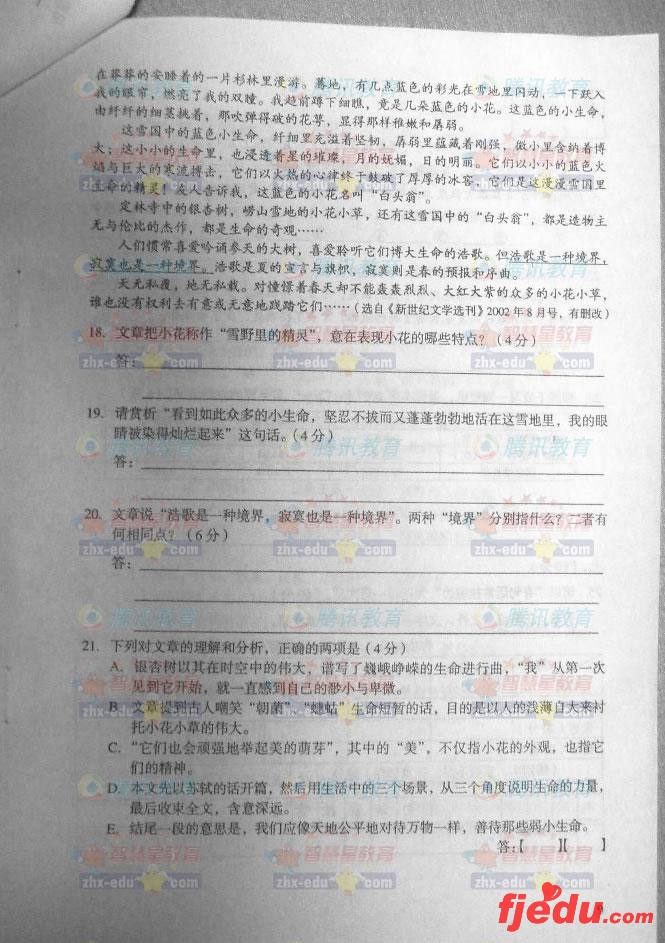 在莽莽的安睡着的一片杉林里漫游。蓦地，有几点蓝色的彩光在雪地里闪动，一下跃入
我的眼帘，燃亮了我的双瞳。我趋前蹲下细瞧，竟是几朵蓝色的小花。这蓝色的小生命，
由纤纤的细茎挑着，那吹弹得破的花萼，显得那样稚嫩和孱弱。
这雪国中的蓝色小生命，纤细里充溢着坚韧，孱弱里蕴藏着刚强，微小里含纳着博
大；这小小的生命里，也浸透着星的璀璨，月的妩媚，日的明丽。它们以小小的蓝色火
焰与巨大的寒流搏击，它们以火热的心律终于鼓破了厚厚的冰窖，它们是这漫漫雪国里
生命的精灵！友人告诉我，这蓝色的小花名叫“白头翁”。
定林寺中的银杏树，崂山雪地的小花小草，还有这雪国中的“白头翁”，都是造物主
无与伦比的杰作，都是生命的奇观……
人们惯常喜爱吟诵参天的大树，喜爱聆听它们博大生命的浩歌。但浩歌是一种境界，
寂寞也是一种境界。浩歌是夏的宣言与旗帜，寂寞则是春的预报和序曲。
天无私覆，地无私载。对憧憬着春天却不能轰轰烈烈、大红大紫的众多的小花小草，
谁也没有权利去有意或无意地践踏它们……（选自《新世纪文学选刊》2002年8月号，有删改）
18. 文章把小花称作“雪野里的精灵”，意在表现小花的哪些特点？（4分）
答：
19. 请赏析“看到如此众多的小生命，坚忍不拔而又蓬蓬勃勃地活在这雪地里，我的眼
睛被染得灿烂起来”这句话。（4分）
答：
20. 文章说“浩歌是一种境界，寂寞也是一种境界”。两种“境界”分别指什么？二者有
何相同点？（6分）
答：
21. 下列对文章的理解和分析，正确的两项是（4分）
A. 银杏树以其在时空中的伟大，谱写了巍峨峥嵘的生命进行曲，“我”从第一次
见到它开始，就一直感到自己的渺小与卑微。
B. 文章提到古人嘲笑“朝菌”、“蟪蛄”生命短暂的话，目的是以人的浅薄自大来衬
托小花小草的伟大。
C. “它们也会顽强地举起美的萌芽”，其中的“美”，不仅指小花的外观，也指它
们的精神。
D. 本文先以苏轼的话开篇，然后用生活中的三个场景，从三个角度说明生命的力量，
最后收束全文，含意深远。
E. 结尾一段的意思是，我们应像天地公平地对待万物一样，善待那些弱小生命。
答：【 】【 】
腾讯教育
智慧星教育
zhx-edu.com
fjedu.com